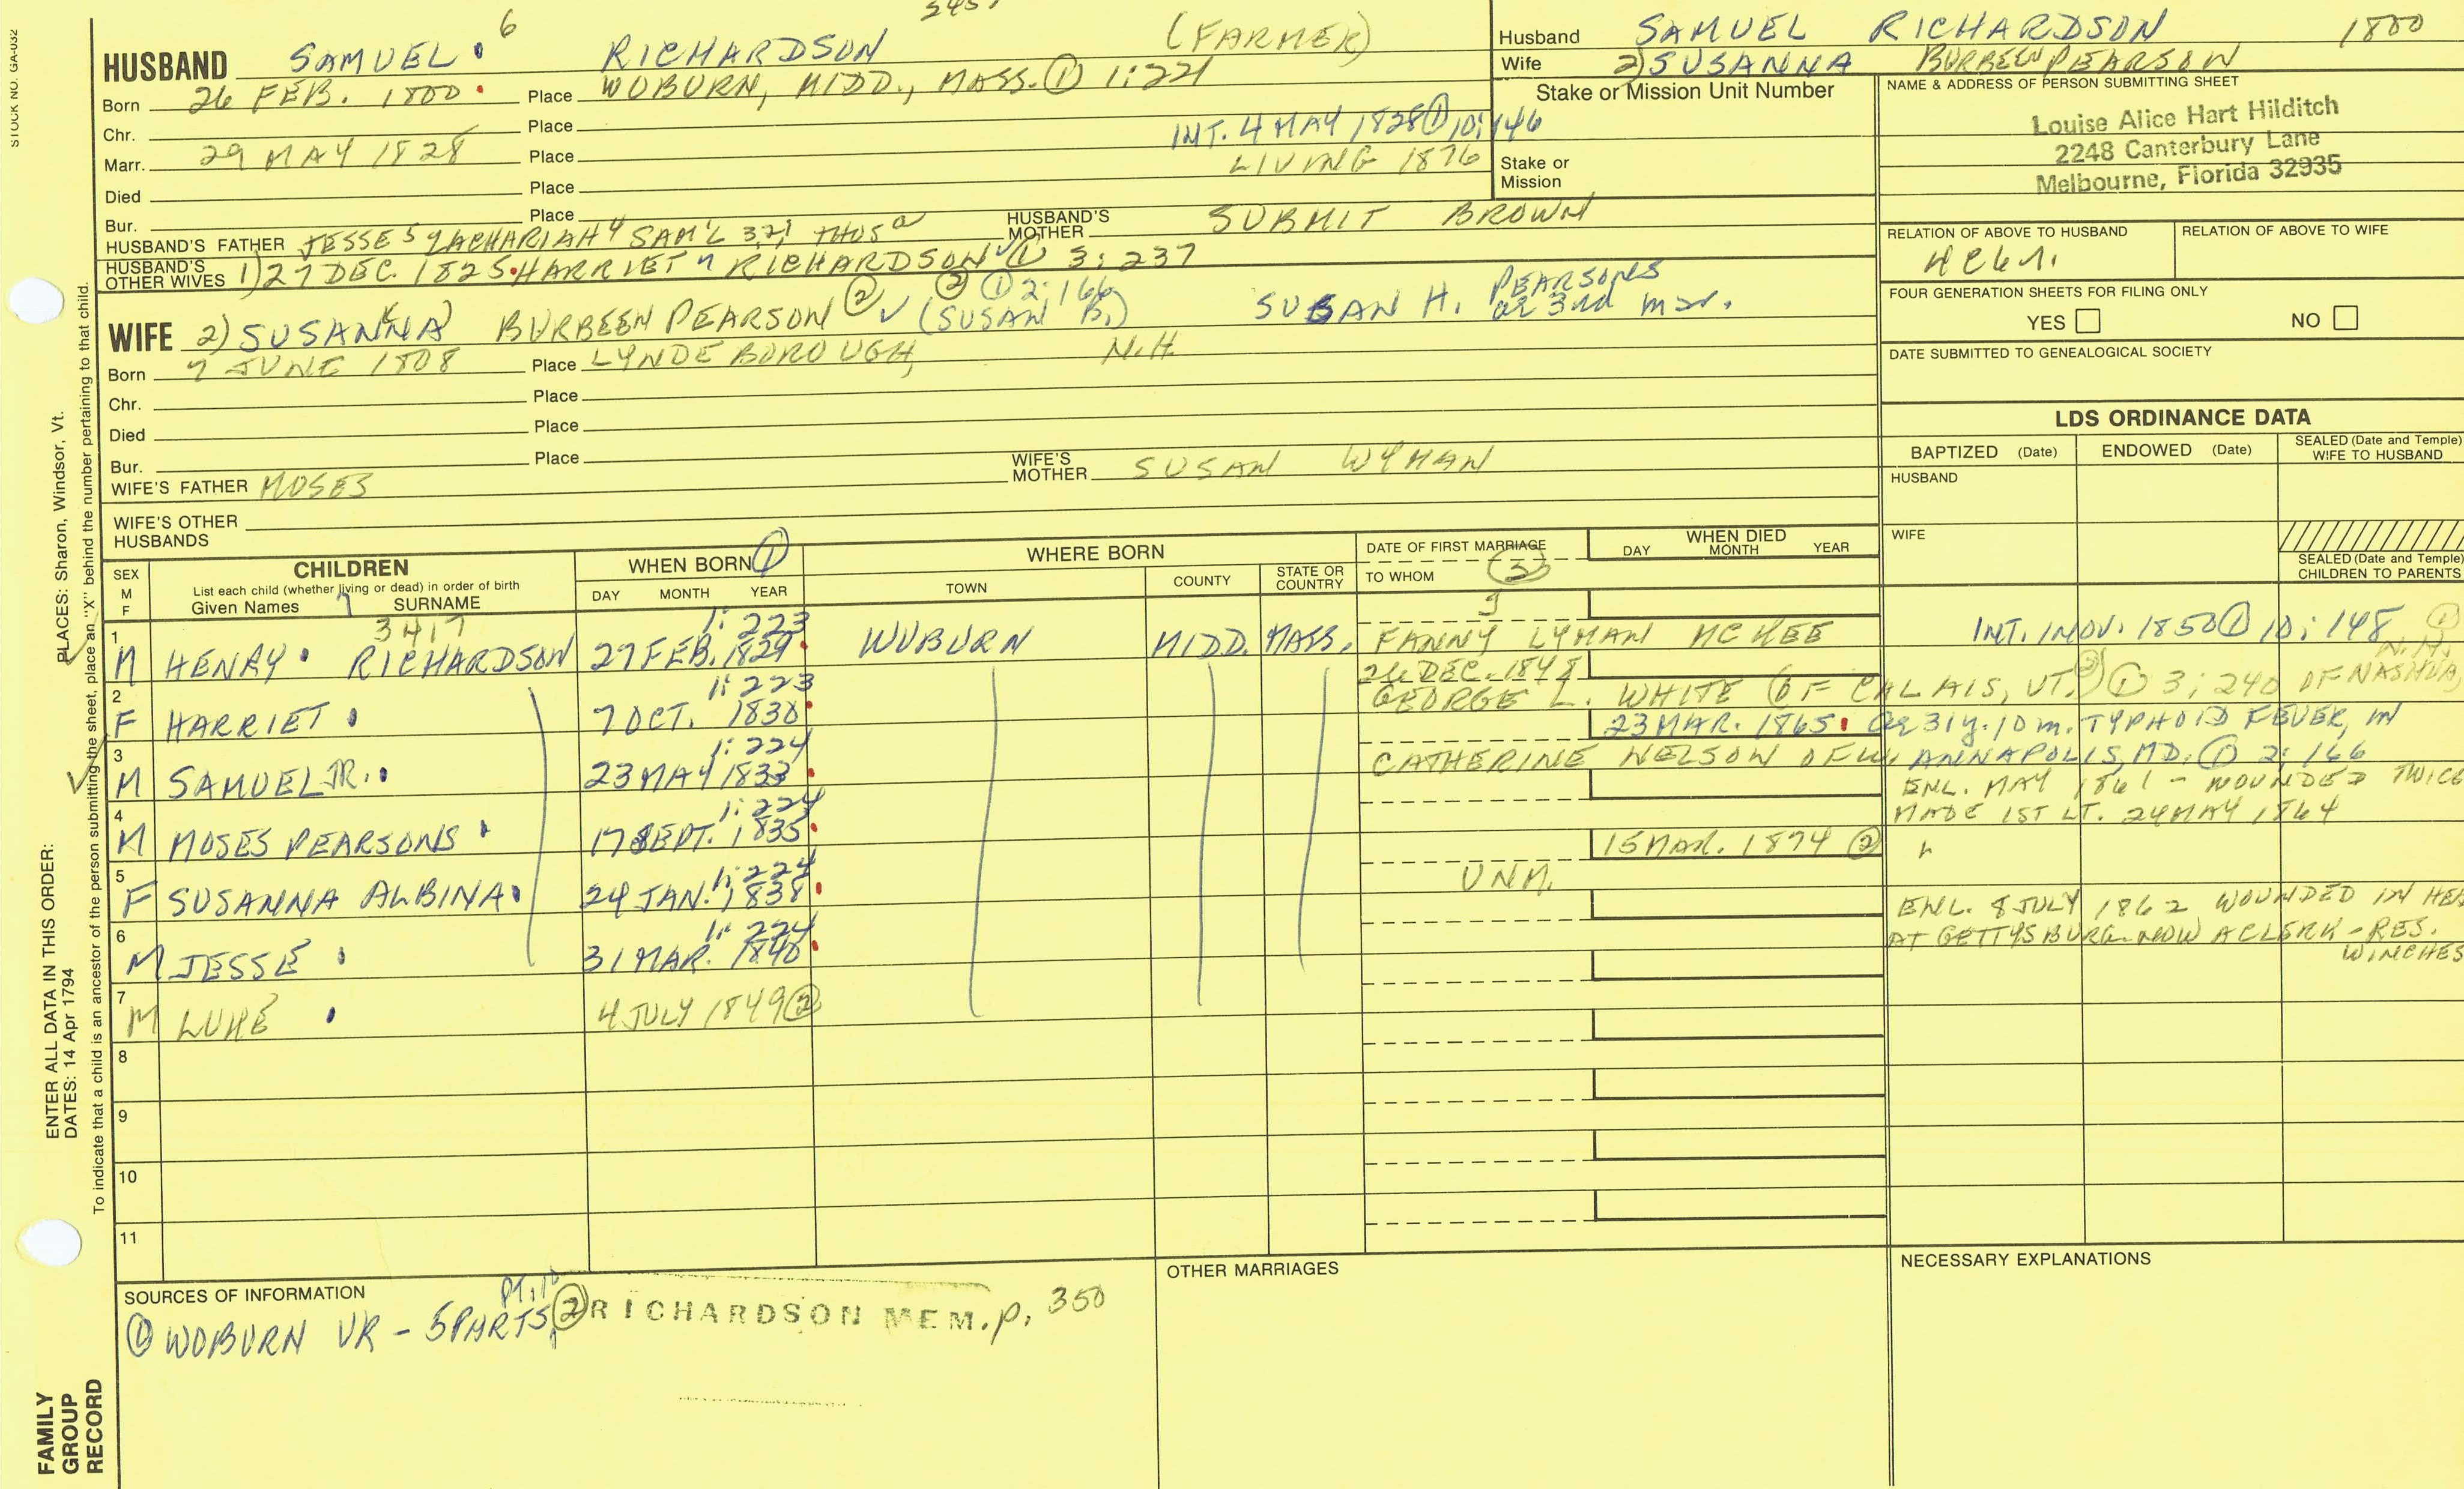 STOCK NO. GA-032
6
HUSBAND SAMUEL RICHARDSON (FARMER)
Born 26 FEB. 1800 Place WOBURN, MIDD., MASS. ① 1:221
Chr. Place
INT. 4 MAY 1828 ① 10:146
Marr. 29 MAY 1828 Place
LIVING 1876
Died Place
Bur. Place
HUSBAND'S FATHER JESSE 5 ZACHARIAH 4 SAM'L 3,2,1 THOS a HUSBAND'S MOTHER SUBMIT BROWN
HUSBAND'S OTHER WIVES 1) 27 DEC. 1825 HARRIET RICHARDSON ① 3:237
② ① 2:166
WIFE 2) SUSANNA BURBEEN PEARSON ② (SUSAN B.) SUSAN H. PEARSONS at 3rd mar.
Born 7 JUNE 1808 Place LYNDEBOROUGH, N.H.
Chr. Place
Died Place
Bur. Place
WIFE'S FATHER MOSES WIFE'S MOTHER SUSAN WYMAN
WIFE'S OTHER HUSBANDS
Husband SAMUEL RICHARDSON 1800
Wife 2) SUSANNA BURBEEN PEARSON
Stake or Mission Unit Number
Stake or Mission
NAME & ADDRESS OF PERSON SUBMITTING SHEET
Louise Alice Hart Hilditch
2248 Canterbury Lane
Melbourne, Florida 32935
RELATION OF ABOVE TO HUSBAND RELATION OF ABOVE TO WIFE
FOUR GENERATION SHEETS FOR FILING ONLY
YES NO
DATE SUBMITTED TO GENEALOGICAL SOCIETY
LDS ORDINANCE DATA
BAPTIZED (Date) ENDOWED (Date) SEALED (Date and Temple) WIFE TO HUSBAND
HUSBAND
WIFE
SEALED (Date and Temple) CHILDREN TO PARENTS
SEX M F
CHILDREN
List each child (whether living or dead) in order of birth
Given Names 7 SURNAME
WHEN BORN ①
DAY MONTH YEAR
WHERE BORN
TOWN COUNTY STATE OR COUNTRY
DATE OF FIRST MARRIAGE
TO WHOM
WHEN DIED
DAY MONTH YEAR
3417 1:223
1 M HENRY RICHARDSON 27 FEB. 1829 WOBURN MIDD. MASS. FANNY LYMAN MCKEE INT. 1 NOV. 1850 ① 10:148
26 DEC. 1848 N.H.
1:223
2 F HARRIET 7 OCT. 1830 GEORGE L. WHITE (OF CALAIS, VT. ②) ① 3:240 OF NASHUA,
1:224 23 MAR. 1865 ae 31y. 10m. TYPHOID FEVER, IN
3 M SAMUEL JR. 23 MAY 1833 CATHERINE NELSON OF W. ANNAPOLIS, MD. ① 2:166
ENL. MAY 1861 - WOUNDED TWICE
1:224 MADE 1ST LT. 24 MAY 1864
4 M MOSES PEARSONS 17 SEPT. 1835 15 MAR. 1874 ②
1:224
5 F SUSANNA ALBINA 24 JAN. 1838 UNM.
1:224 ENL. 8 JULY 1862 WOUNDED IN HEA
AT GETTYSBURG-NOW A CLERK-RES.
6 M JESSE 31 MAR. 1840 WINCHES
7 M LUKE 4 JULY 1849 ②
8
9
10
11
SOURCES OF INFORMATION
① WOBURN VR - 5 PARTS, ② RICHARDSON MEM. p. 350
OTHER MARRIAGES
NECESSARY EXPLANATIONS
PLACES: Sharon, Windsor, Vt.
ENTER ALL DATA IN THIS ORDER:
DATES: 14 Apr 1794
To indicate that a child is an ancestor of the person submitting the sheet, place an "X" behind the number pertaining to that child.
FAMILY GROUP RECORD